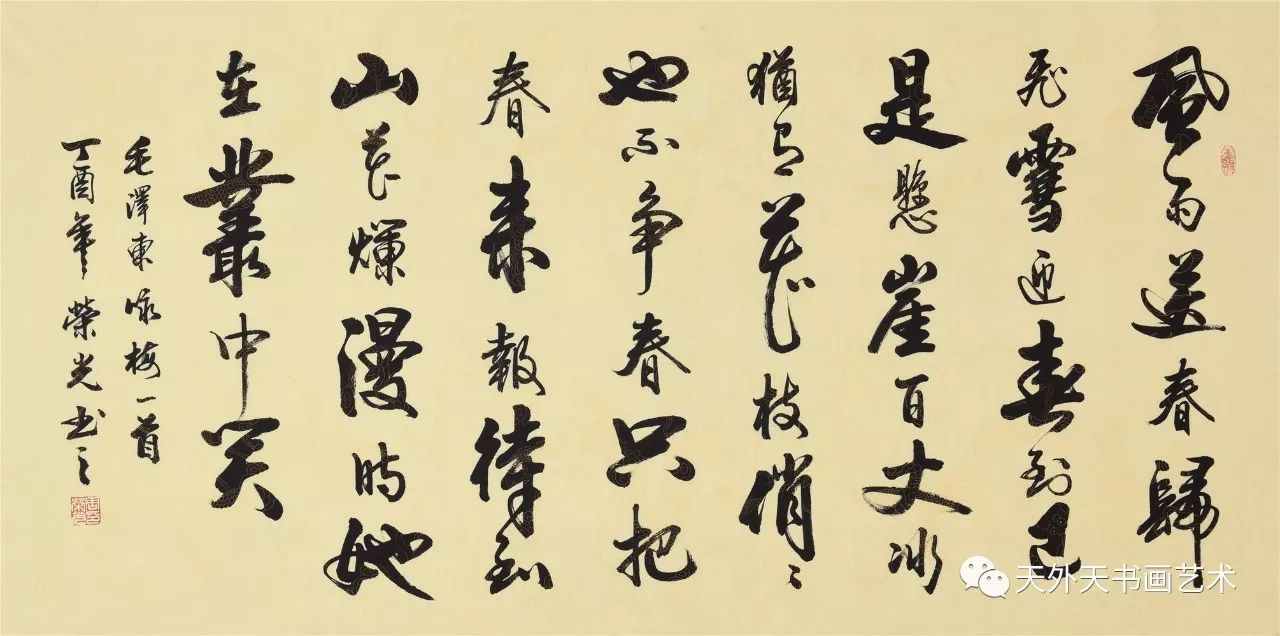 風雨送春歸
飛雪迎春到已
是懸崖百丈冰
猶有花枝俏〻
也不争春只把
春來報待到
山花爛漫時她
在叢中笑
毛澤東詠梅一首
丁酉年榮光书之
天外天书画艺术